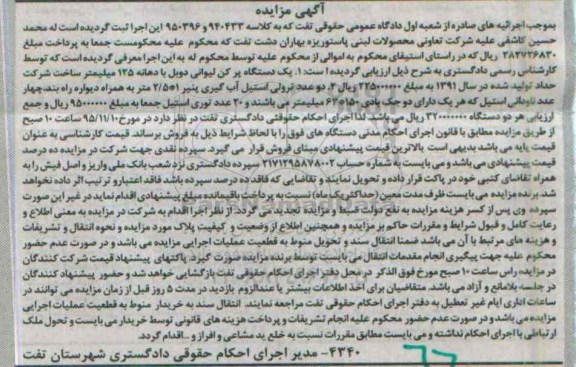 آگهی مزایده
بموجب اجرائیه های صادره از شعبه اول دادگاه عمومی حقوقی تفت که به کلاسه ۹۴۰۴۳۳ و ۹۵۰۳۹۶ این اجرا ثبت گردیده است له محمد
حسین کاشفی علیه شرکت تعاونی محصولات لبنی پاستوریزه بهاران دشت تفت که محکوم علیه محکومست جمعا به پرداخت مبلغ
۲۸۲۷۲۶۸۳۰ ریال که در راستای استیفای محکوم به اموالی از محکوم علیه توسط محکوم له به این اجرا معرفی گردیده است که توسط
کارشناس رسمی دادگستری به شرح ذیل ارزیابی گردیده است: ۱. یک دستگاه پر کن لیوانی دوبل با دهانه ۱۲۵ میلیمتر ساخت شرکت
حداد تولید شده در سال ۱۳۹۱ به مبلغ ۲۲۵۰۰۰۰۰۰ ریال ۲. دو عدد ترولی استیل آب گیری پنیر ۱*۲/۵ متر به همراه دیواره راه بند، چهار
عدد ناودانی استیل که هر یک دارای دو جک بادی ۱۵۰*۶۳ میلیمتر می باشند و ۲۰ عدد توری استیل جمعا به مبلغ ۹۵۰۰۰۰۰۰ ریال و جمع
ارزیابی هر دو دستگاه ۳۲۰۰۰۰۰۰۰ ریال می باشد لذا اجرای احکام حقوقی دادگستری تفت در نظر دارد در مورخ ۹۵/۱۱/۱۰ ساعت ۱۰ صبح
از طریق مزایده مطابق با قانون اجرای احکام مدنی دستگاه های فوق را با لحاظ شرایط ذیل به فروش برساند. قیمت کارشناسی به عنوان
قیمت پایه می باشد بدیهی است بالاترین قیمت پیشنهادی مبنای فروش قرار می گیرد. سپرده نقدی جهت شرکت در مزایده ده درصد
قیمت پیشنهادی می باشد و می بایست به شماره حساب ۲۱۷۱۲۹۵۸۷۸۰۰۲ سپرده دادگستری نزد شعب بانک ملی واریز و اصل فیش را به
همراه تقاضای کتبی خود در پاکت قرار داده و تحویل نمایند و تقاضایی که فاقد ده درصد سپرده باشد فاقد اعتبار و ترتیب اثر داده نخواهد
شد. برنده مزایده می بایست ظرف مدت معین (حداکثر یک ماه) نسبت به پرداخت باقیمانده مبلغ پیشنهادی اقدام نماید در غیر این صورت
سپرده وی پس از کسر هزینه مزایده به نفع دولت ضبط و مزایده تجدید می گردد. از نظر اجرا اقدام به شرکت در مزایده به معنی اطلاع و
رعایت کامل و قبول شرایط و مقررات حاکم بر مزایده و همچنین اطلاع از وضعیت و کیفیت پلاک مورد مزایده و نحوه انتقال و تشریفات
و هزینه های مرتبط با آن می باشد ضمنا انتقال سند و تحویل منوط به قطعیت عملیات اجرایی مزایده می باشد و در صورت عدم حضور
محکوم علیه جهت پیگیری انجام مقدمات انتقال می بایست توسط برنده مزایده صورت گیرد. پاکتهای پیشنهاد قیمت شرکت کنندگان
در مزایده راس ساعت ۱۰ صبح مورخ فوق الذکر در محل دفتر اجرای احکام حقوقی تفت بازگشایی خواهد شد و حضور پیشنهاد کنندگان
در جلسه بلامانع و آزاد می باشد. متقاضیان برای اخذ اطلاعات بیشتر یا عندالزوم بازدید در مدت ۵ روز قبل از زمان مزایده می توانند در
ساعات اداری ایام غیر تعطیل به دفتر اجرای احکام حقوقی تفت مراجعه نمایند. انتقال سند به خریدار منوط به قطعیت عملیات اجرایی
مزایده می باشد و در صورت عدم حضور محکوم علیه انجام تشریفات و پرداخت هزینه های قانونی توسط خریدار می بایست و تحول ملک
ارتباطی با اجرای احکام نداشته و می بایست مطابق مقررات نسبت به خلع ید مشاعی و افراز و ...اقدام گردد.
۴۳۴۰- مدیر اجرای احکام حقوقی دادگستری شهرستان تفت